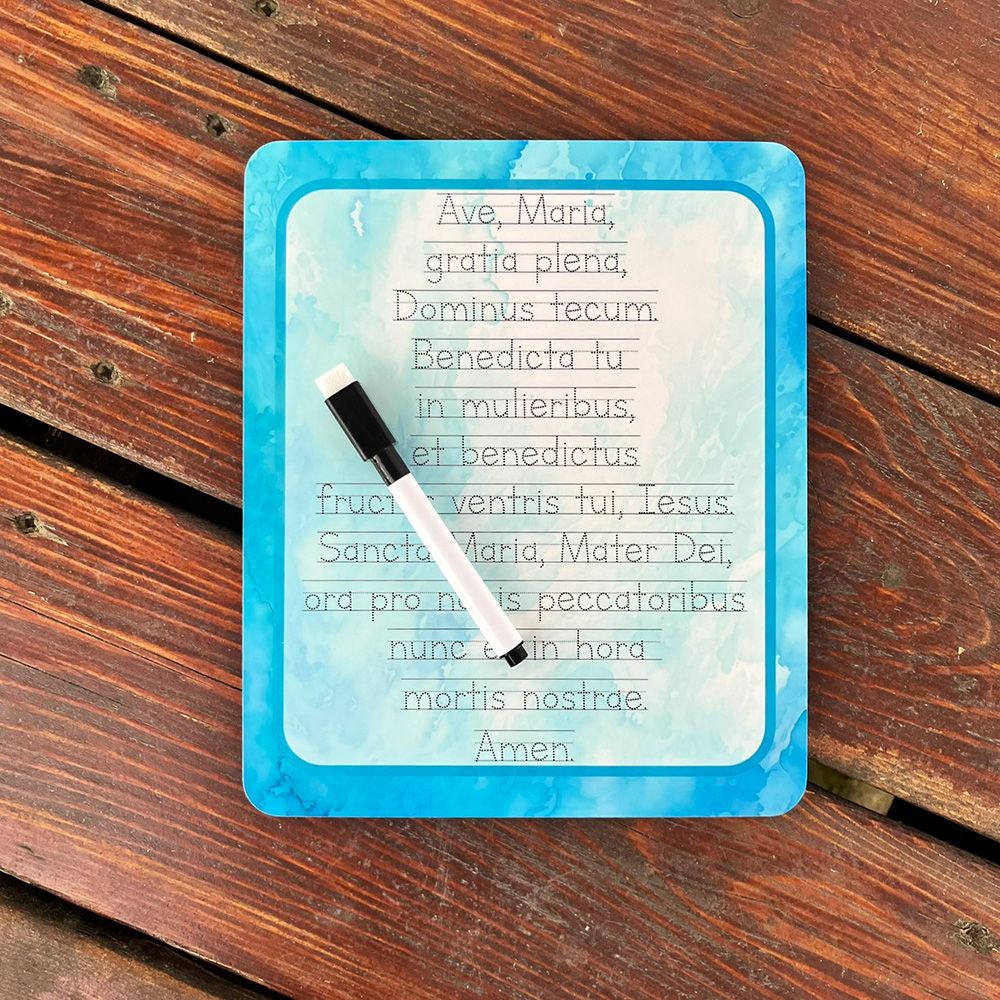 Ave, Maria,
gratia plena,
Dominus tecum.
Benedicta tu
in mulieribus,
et benedictus
ventris tui, Iesus.
Sancta Maria, Mater Dei,
ora pro peccatoribus
nunc in hora
mortis nostrae.
Amen.